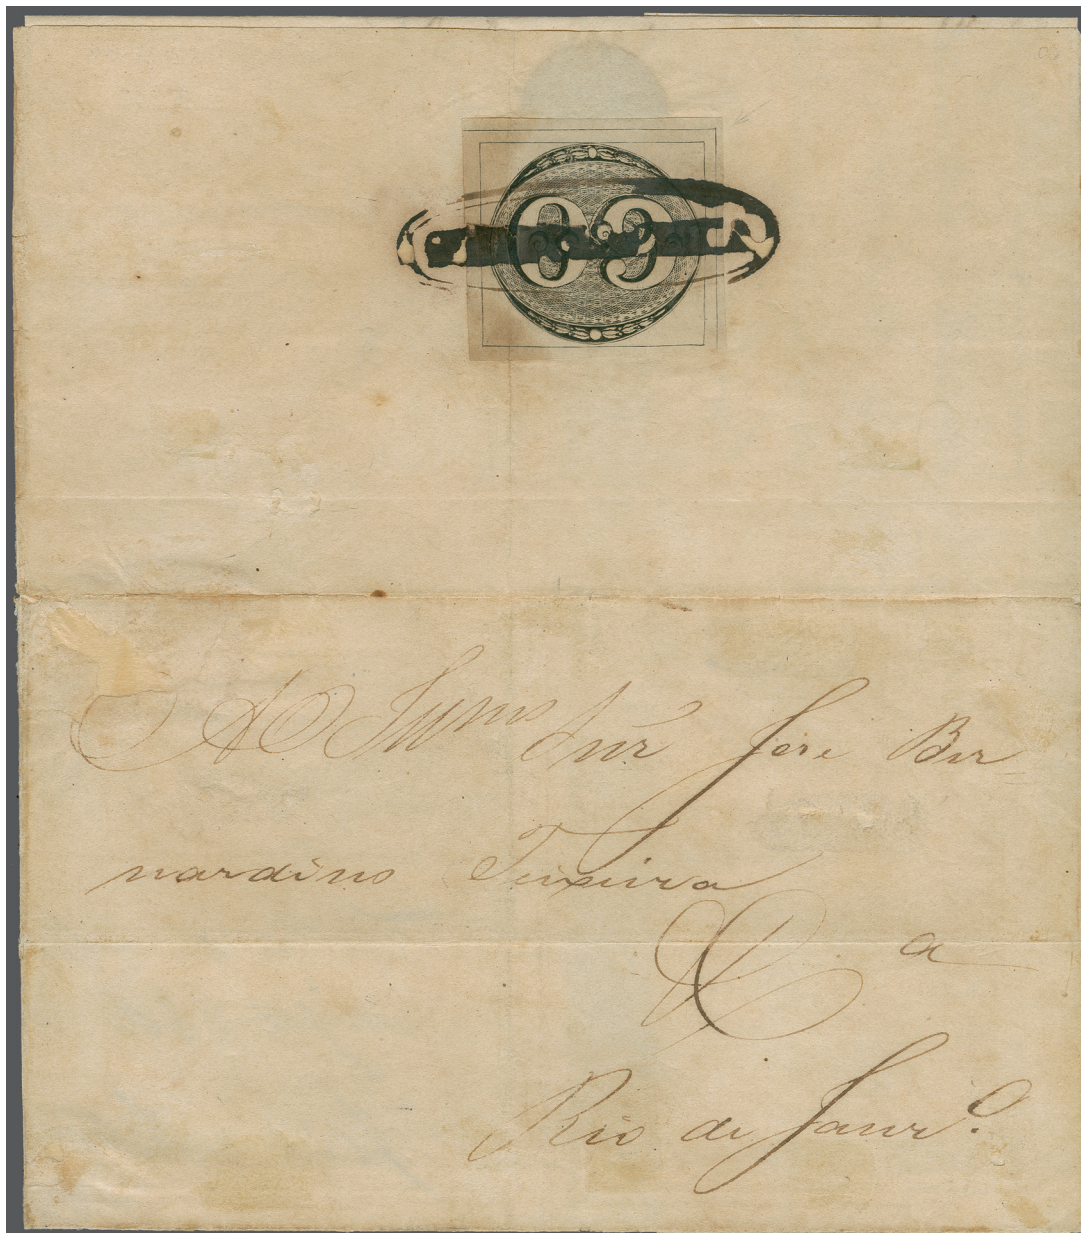 Ao Illmo Snr Jose Ber=
nardino Teixeira
& Ca
Rio de Janrº.